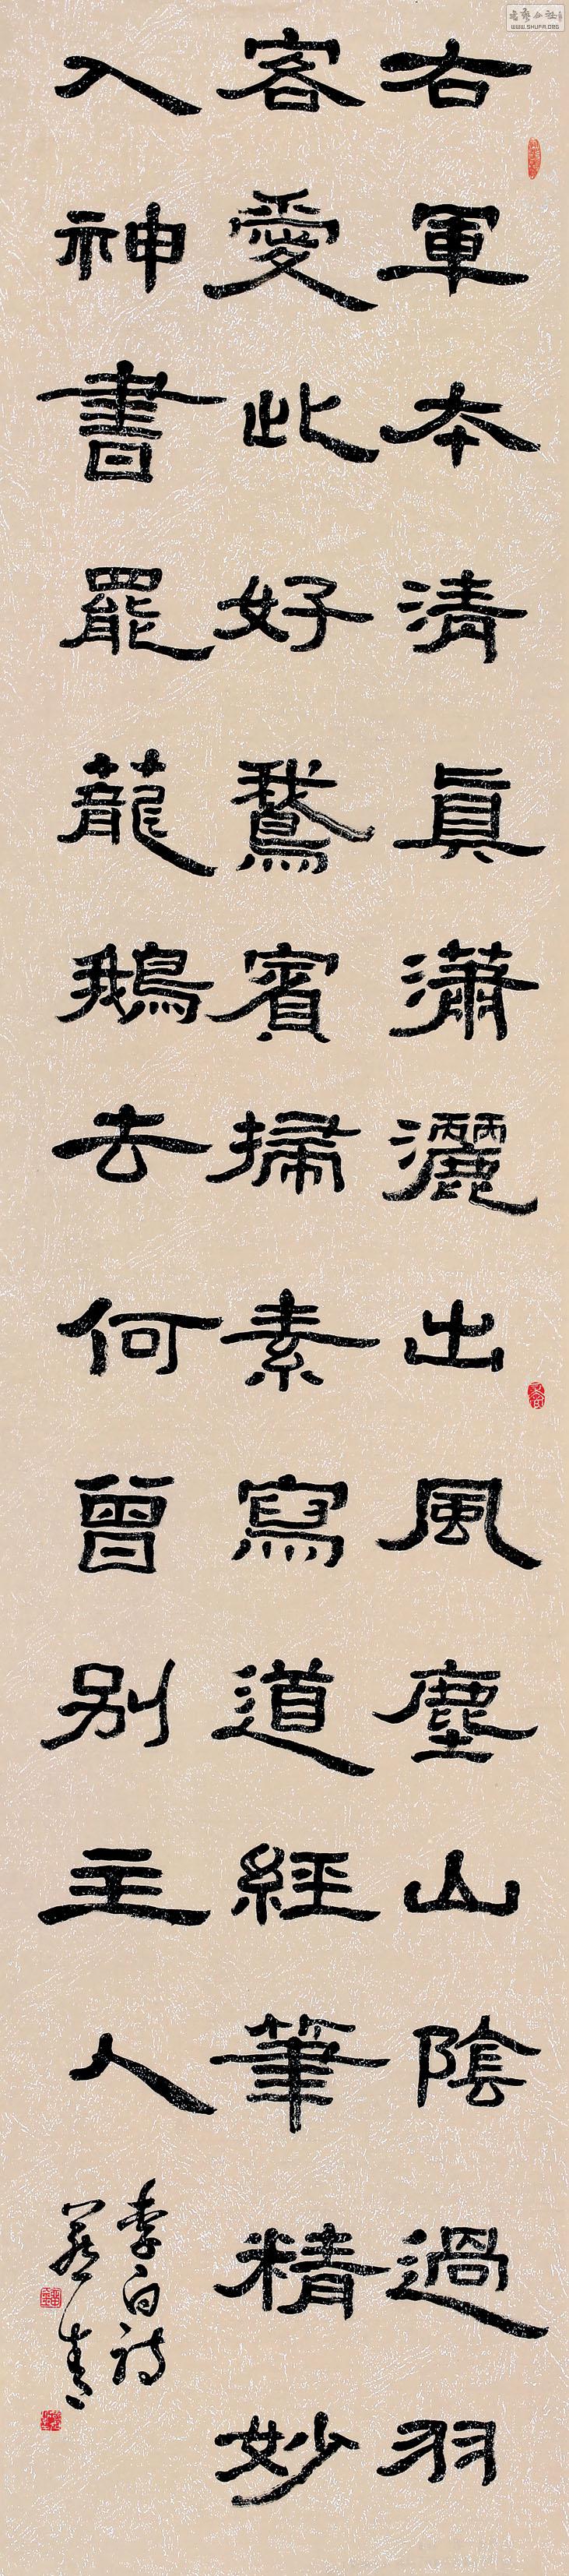 右軍本清眞瀟灑出風塵山陰過羽
客愛此好鵞賓掃素寫道經筆精妙
入神書罷蘢鵝去何曾別主人
李白詩
WWW.SHUFA.ORG